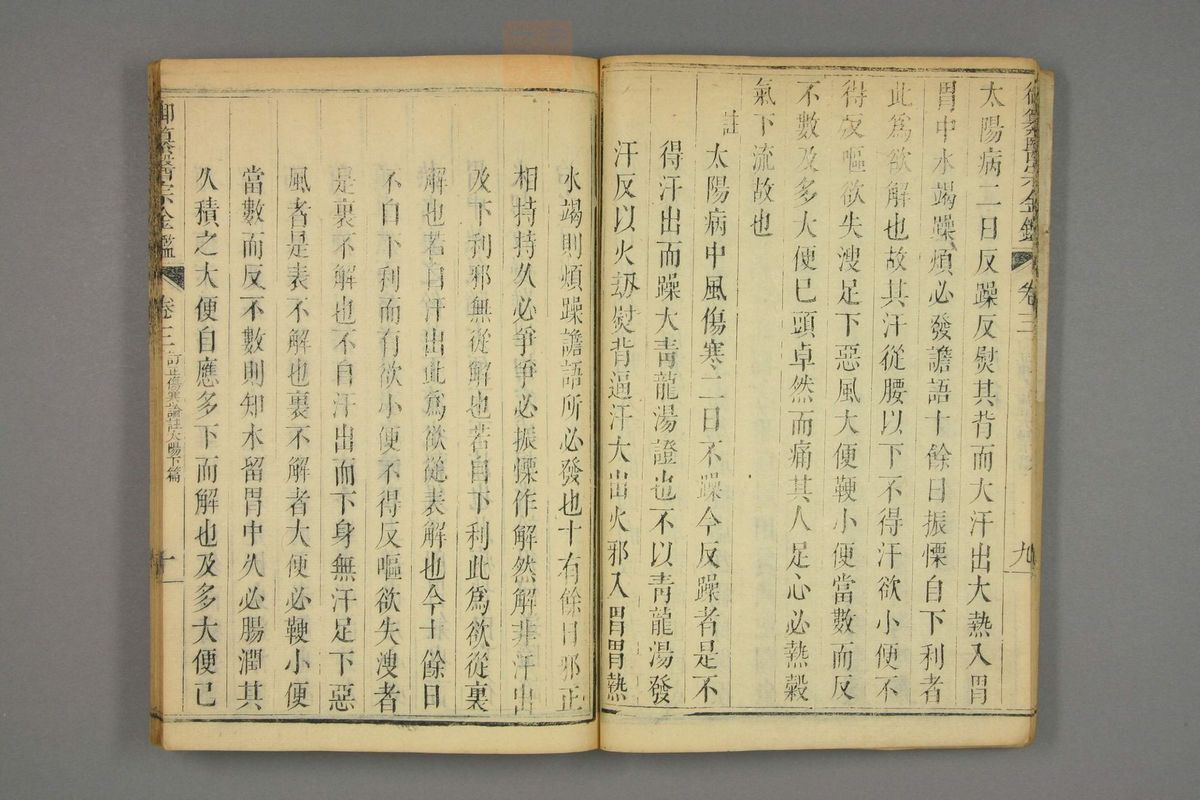 太陽病二日反躁反熨其背而大汗出大熱入胃
胃中水竭躁煩必發譫語十餘日振慄自下利者
此爲欲解也故其汗從腰以下不得汗欲小便不
得反嘔欲失溲足下惡風大便鞕小便當數而反
不數及多大便已頭卓然而痛其人足心必熱穀
氣下流故也
註
太陽病中風傷寒二日不躁今反躁者是不
得汗出而躁大靑龍湯證也不以靑龍湯發
汗反以火刼熨背逼汗大出火邪入胃胃熱
水竭則煩躁譫語所必發也十有餘日邪正
相持持久必爭爭必振慄作解然解非汗出
及下利邪無從解也若自下利此爲欲從裏
解也若自汗出此爲欲從表解也今十餘日
不自下利而有欲小便不得反嘔欲失溲者
是裏不解也不自汗出而下身無汗足下惡
風者是表不解也裏不解者大便必鞕小便
當數而反不數則知水留胃中久必腸潤其
久積之大便自應多下而解也及多大便已
御纂醫宗金鑑
卷三
訂正傷寒論註太陽下篇
十
御纂醫宗金鑑
卷三
九